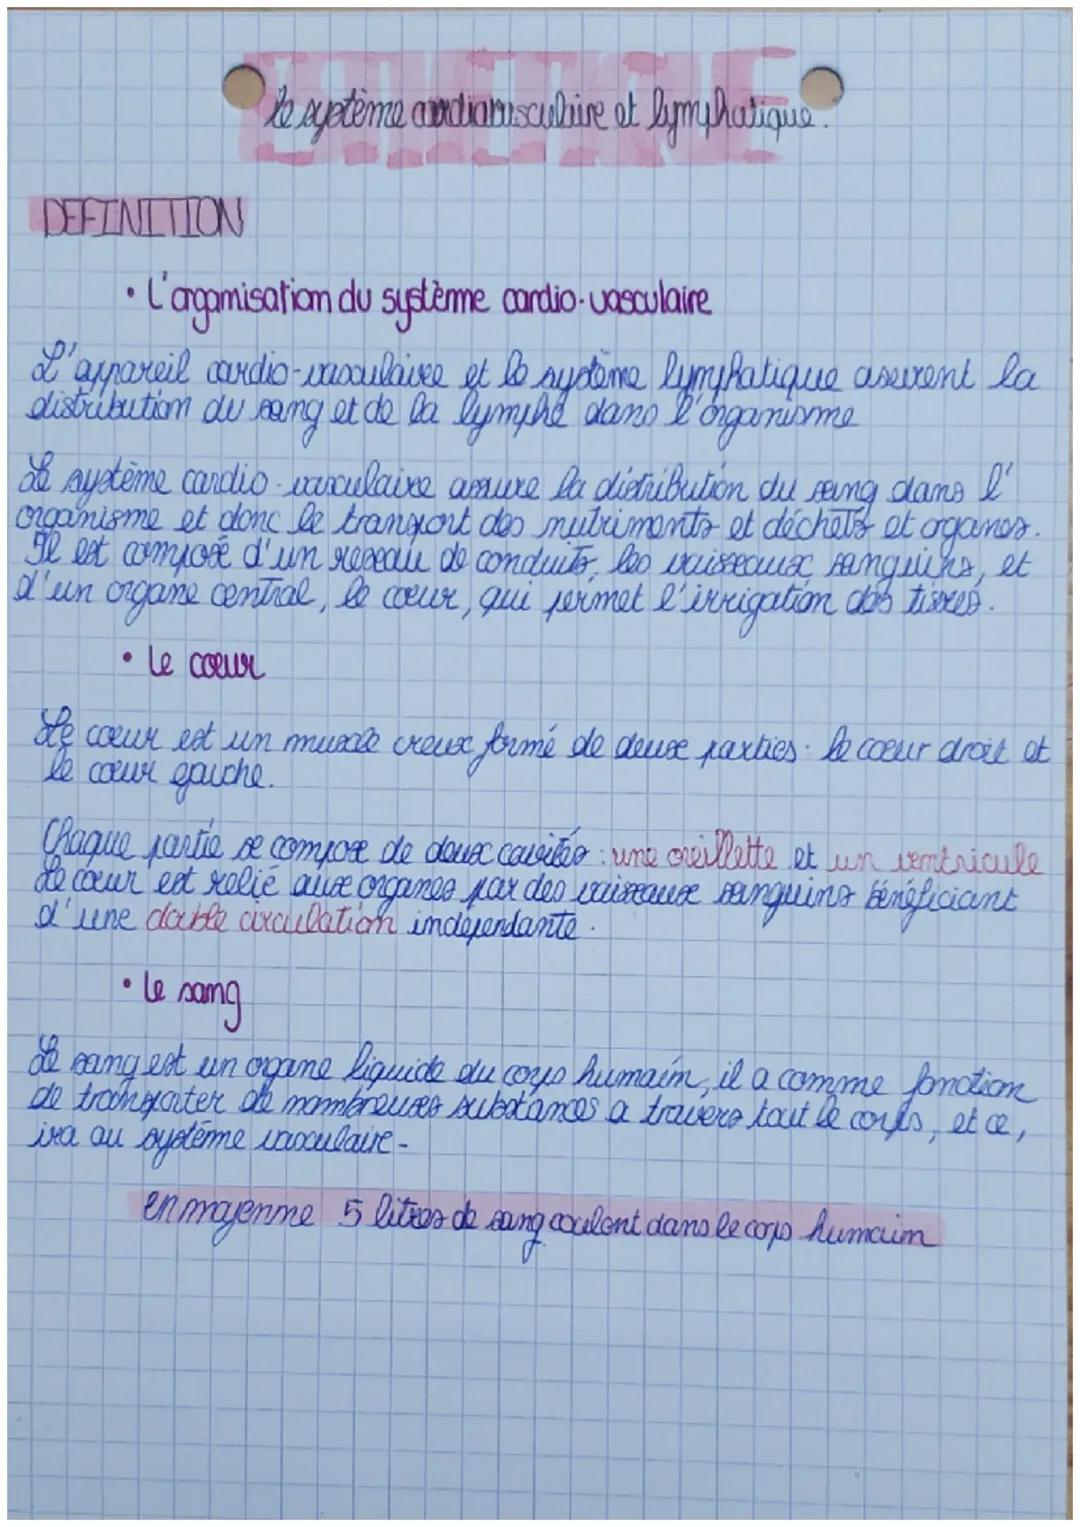 le système cardiovasculaire et lymphatique.
DEFINITION
• L'organisation du système cardio-vasculaire
L'appareil cardio-vasculaire et le système lymphatique assurent la
distribution du sang et de la lymphe dans l'organisme
Le système cardio-vasculaire assure la distribution du sang dans l'
organisme et donc le transport des nutriments et déchets et organes.
Il est composé d'un reseau de conduits, les vaisseaux sanguins, et
d'un organe central, le coeur, qui permet l'irrigation des tissus.
• Le coeur
Le coeur est un muscle creux formé de deux parties : le coeur droit et
le coeur gauche.
Chaque partie se compose de deux cavités : une oreillette et un ventricule
Le coeur est relié aux organes par des vaisseaux sanguins bénéficiant
d'une double circulation indépendante.
• Le sang
Le sang est un organe liquide du corps humain, il a comme fonction
de transporter de nombreuses substances a travers tout le corps, et ce,
via au système vasculaire-
en moyenne 5 litres de sang coulent dans le corps humain